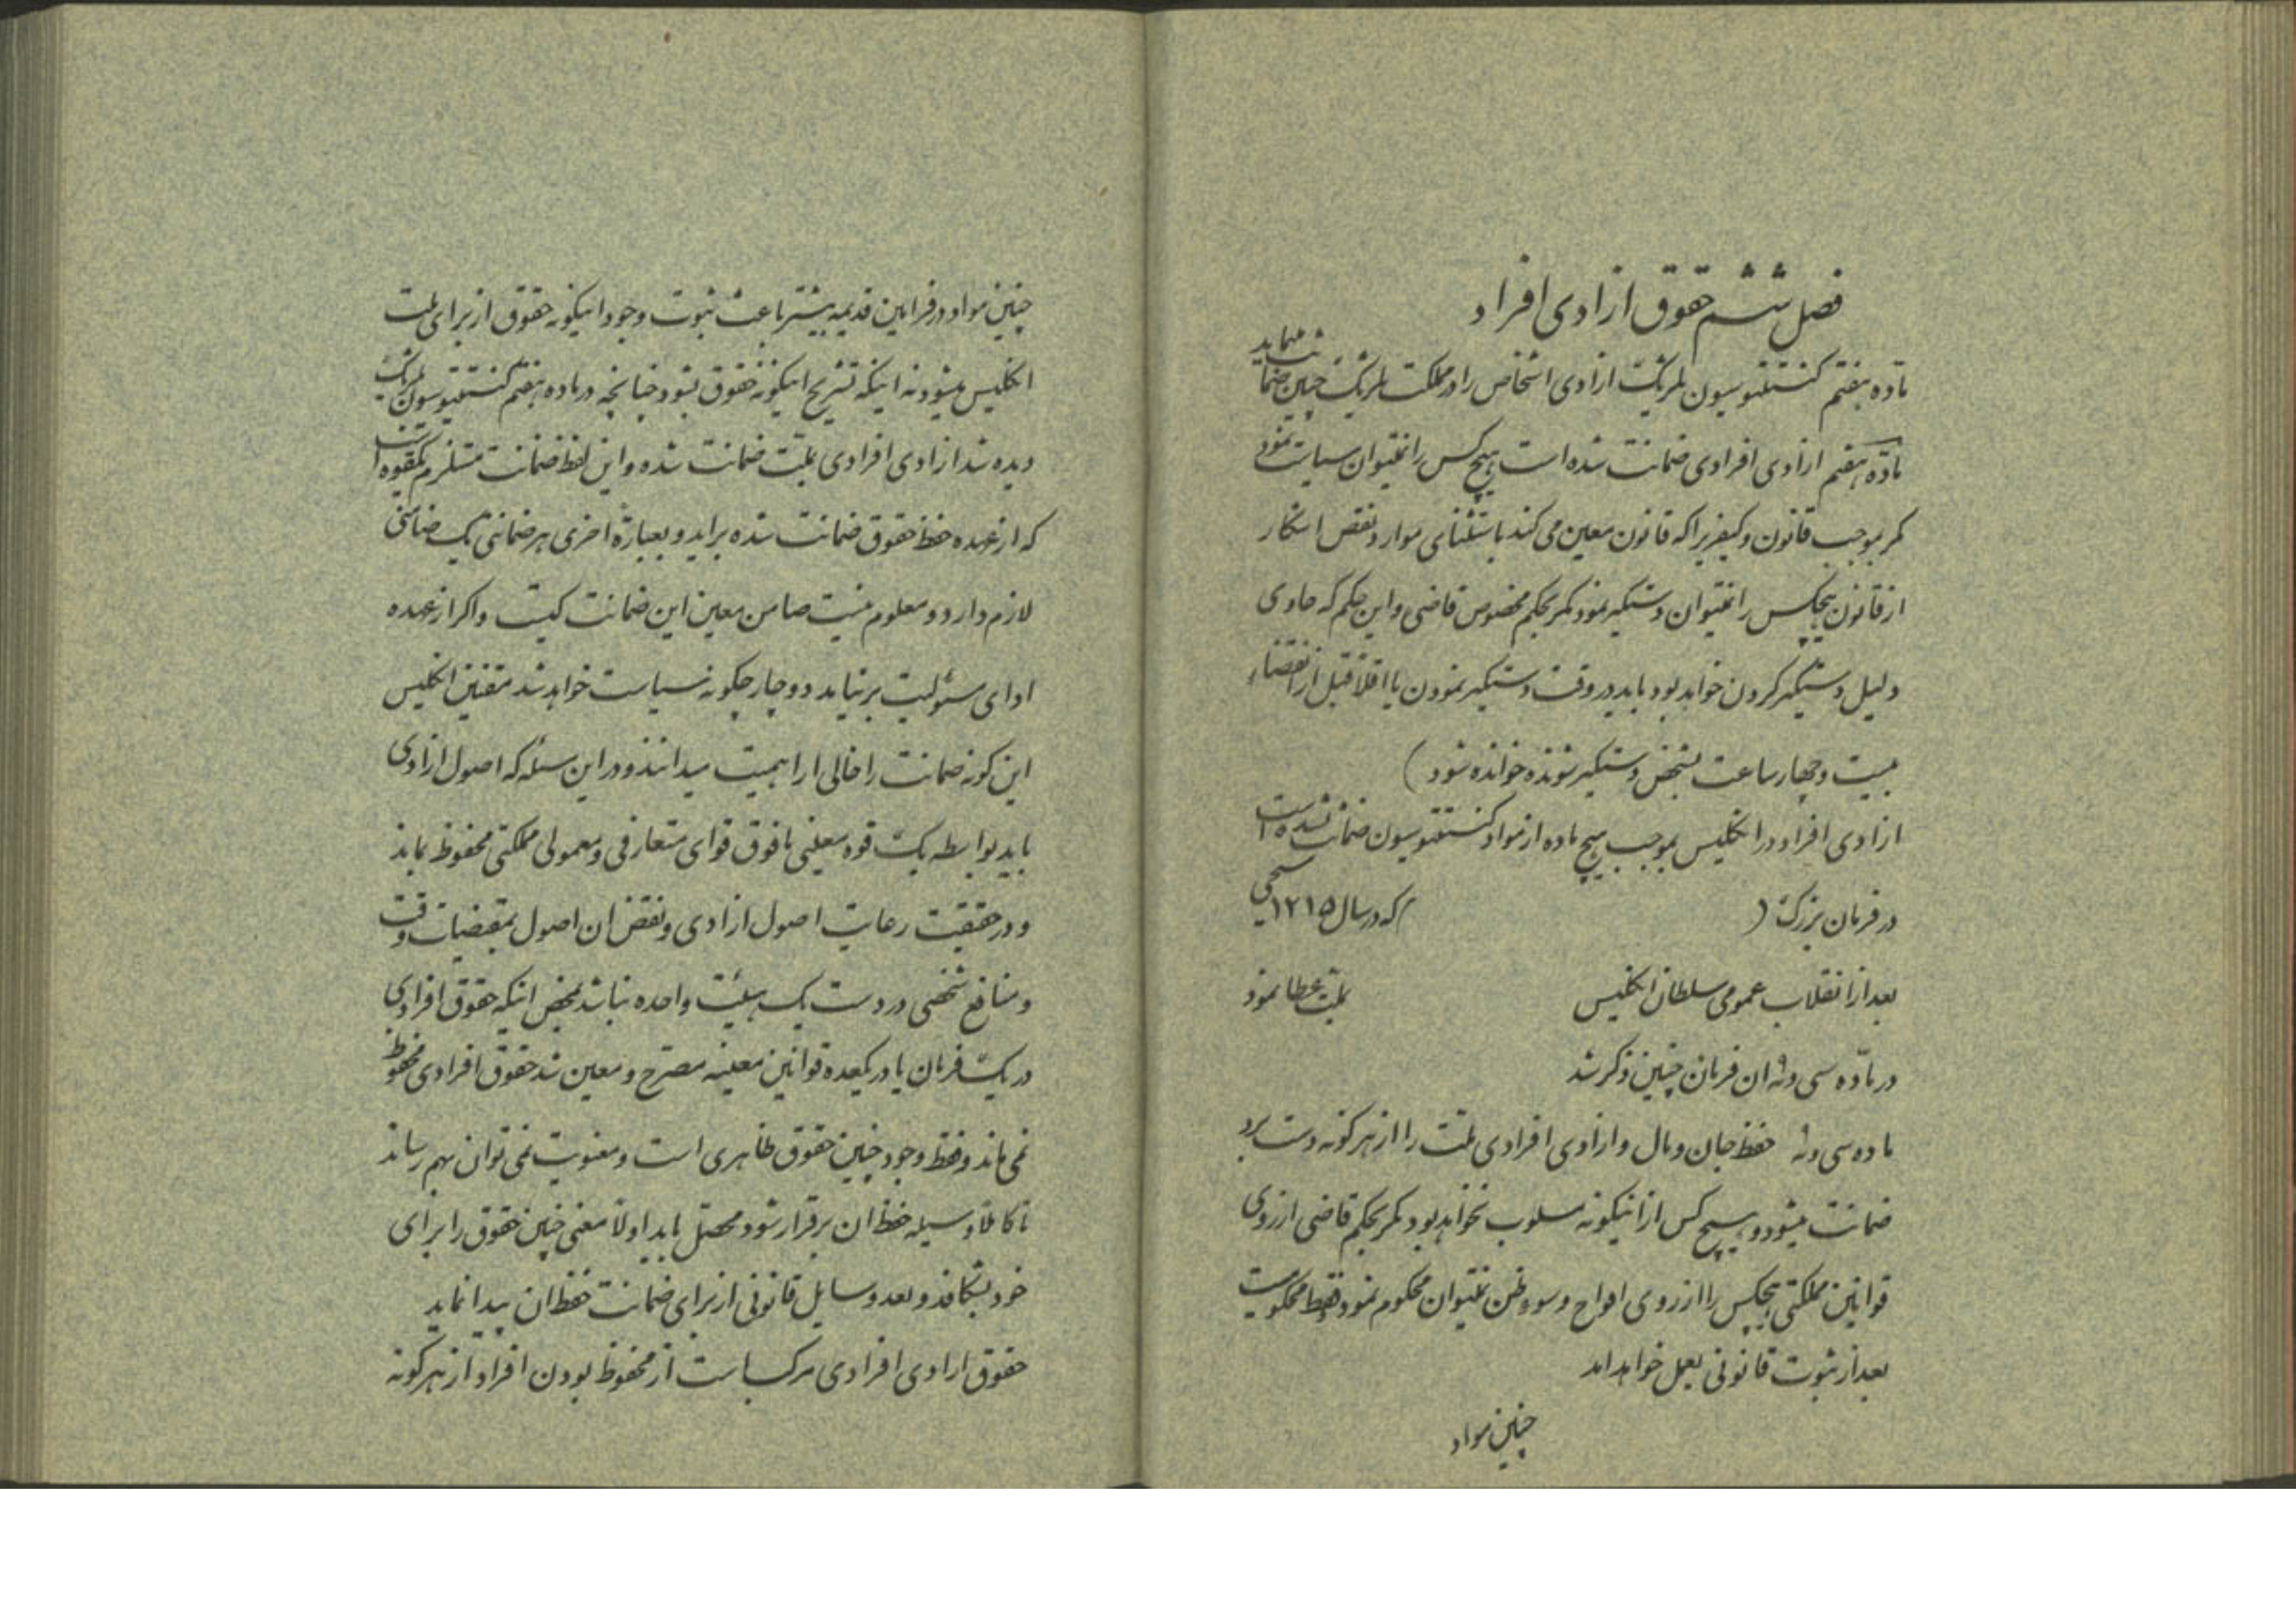 فصل ششم حقوق ازادی افراد
ماده هفتم کنستتوسیون بلژیک ازادی اشخاص را در مملکت بلژیک چنین ضمانت مینماید
ماده هفتم ازادی افرادی ضمانت شده است هیچ کس را نمیتوان سیاست نمود
مگر بموجب قانون و کیفریرا که قانون معین می کند باستثنای موارد نقض اشکار
از قانون هیچکس را نمیتوان دستگیر نمود مگر بحکم مخصوص قاضی و این حکم که حاوی
دلیل دستگیر کردن خواهد بود باید در وقت دستگیر نمودن یا اقلا قبل از انقضاء
بیست و چهار ساعت بشخص دستگیر شونده خوانده شود )
ازادی افراد در انگلیس بموجب هیچ ماده از مواد کنستتوسیون ضمانت نشده است
در فرمان بزرگ ( که در سال ۱۲۱۵ مسیحی
بعد از انقلاب عمومی سلطان انگلیس بملت عطا نمود
در ماده سی و نه ان فرمان چنین ذکر شد
ماده سی و نه حفظ جان و مال و ازادی افرادی ملت را از هرگونه دست برد
ضمانت میشود و هیچ کس از اینگونه مسلوب نخواهد بود مگر بحکم قاضی از روی
قوانین مملکتی هیچکس را از روی افواح و سوء ظن نمیتوان محکوم نمود فقط محکومیت
بعد از ثبوت قانونی بعمل خواهد امد
چنین مواد
چنین مواد در فرامین قدیمه بیشتر باعث ثبوت وجود اینگونه حقوق از برای ملت
انگلیس میشود نه اینکه تشریح اینگونه حقوق بشود چنانچه در ماده هفتم کنستتوسیون بلژیک
دیده شد ازادی افرادی بملت ضمانت شده و این لفظ ضمانت مستلزم یکقوه است
که از عهده حفظ حقوق ضمانت شده براید و بعبارة اخری هر ضمانتی یک ضامنی
لازم دارد و معلوم نیست ضامن معین این ضمانت کیست و اگر از عهده
ادای مسئولیت بر نیاید دوچار چگونه سیاست خواهد شد مقننین انگلیس
این گونه ضمانت را خالی از اهمیت میدانند و در این مسئله که اصول ازادی
باید بواسطه یک قوه معلنی مافوق قوای متعارفی و معمولی مملکتی محفوظ بماند
و در حقیقت رعایت اصول ازادی و نقض ان اصول بمقتضیات وقت
و منافع شخصی در دست یک هیئت واحده نباشد بمحض اینکه حقوق افرادی
در یک فرمان یا در یکعده قوانین معینه مصرح و معین شد حقوق افرادی محفوظ
نمی ماند و فقط وجود چنین حقوق ظاهری است و معنویت نمی توان بهم رساند
تا کاملا وسیله حفظ ان برقرار شود محصل باید اولا معنی چنین حقوق را برای
خود بشکافد و بعد وسایل قانونی از برای ضمانت حفظ ان پیدا نماید
حقوق ازادی افرادی مرکب است از محفوظ بودن افراد از هرگونه